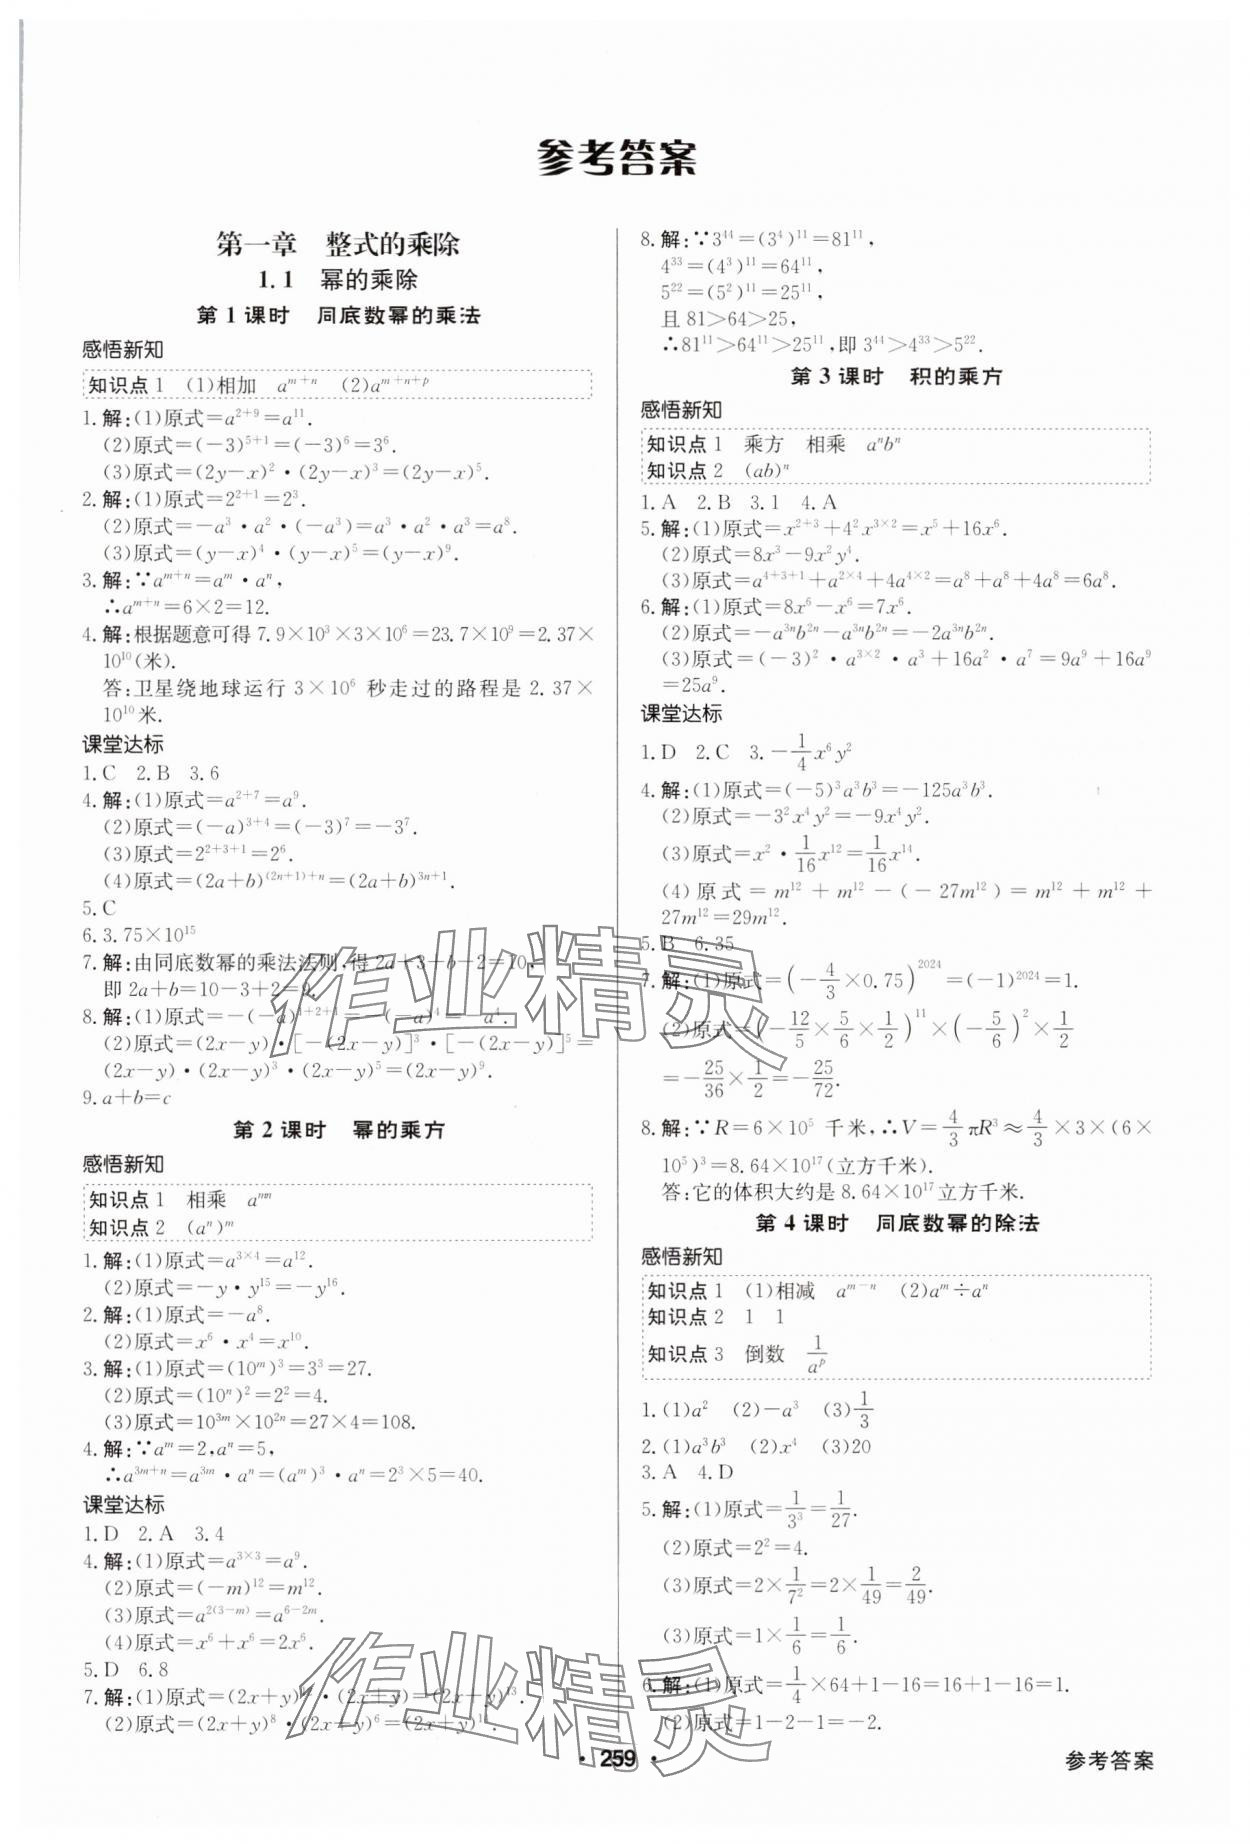 参考答案
第一章 整式的乘除
1.1 幂的乘除
第1课时 同底数幂的乘法
感悟新知
知识点1 (1)相加 a^{m+n} (2)a^{m+n+p}
1.解:(1)原式=a^{2+9}=a^{11}.
(2)原式=(-3)^{5+1}=(-3)^6=3^6.
(3)原式=(2y-x)^2·(2y-x)^3=(2y-x)^5.
2.解:(1)原式=2^{2+1}=2^3.
(2)原式=-a^3·a^2·(-a^3)=a^3·a^2·a^3=a^8.
(3)原式=(y-x)^4·(y-x)^5=(y-x)^9.
3.解:∵a^{m+n}=a^m·a^n,
∴a^{m+n}=6×2=12.
4.解:根据题意可得7.9×10^3×3×10^6=23.7×10^9=2.37×
10^{10}(米).
答:卫星绕地球运行3×10^6秒走过的路程是2.37×
10^{10}米.
课堂达标
1.C 2.B 3.6
4.解:(1)原式=a^{2+7}=a^9.
(2)原式=(-a)^{3+4}=(-3)^7=-3^7.
(3)原式=2^{2+3+1}=2^6.
(4)原式=(2a+b)^{(2n+1)+n}=(2a+b)^{3n+1}.
5.C
6.3.75×10^{15}
7.解:由同底数幂的乘法法则,得2a+3+b-2=10,
即2a+b=10-3+2=9.
8.解:(1)原式=-(-a)^{1+2+1}=-(-a)^4=-a^4.
(2)原式=(2x-y)·[-(2x-y)]^3·[-(2x-y)]^5=
(2x-y)·(2x-y)^3·(2x-y)^5=(2x-y)^9.
9.a+b=c
第2课时 幂的乘方
感悟新知
知识点1 相乘 a^{mn}
知识点2 (a^n)^m
1.解:(1)原式=a^{3×4}=a^{12}.
(2)原式=-y·y^{15}=-y^{16}.
2.解:(1)原式=-a^8.
(2)原式=x^6·x^4=x^{10}.
3.解:(1)原式=(10^m)^3=3^3=27.
(2)原式=(10^n)^2=2^2=4.
(3)原式=10^{3m}×10^{2n}=27×4=108.
4.解:∵a^m=2,a^n=5,
∴a^{3m+n}=a^{3m}·a^n=(a^m)^3·a^n=2^3×5=40.
课堂达标
1.D 2.A 3.4
4.解:(1)原式=a^{3×3}=a^9.
(2)原式=(-m)^{12}=m^{12}.
(3)原式=a^{2(3-m)}=a^{6-2m}.
(4)原式=x^6+x^6=2x^6.
5.D 6.8
7.解:(1)原式=(2x+y) ·(2x+y)=(2x+y)^{13}.
(2)原式=(2x+y)^8·(2x+y)^6=(2x+y)^{14}.
8.解:∵3^{44}=(3^4)^{11}=81^{11},
4^{33}=(4^3)^{11}=64^{11},
5^{22}=(5^2)^{11}=25^{11},
且81>64>25,
∴81^{11}>64^{11}>25^{11},即3^{44}>4^{33}>5^{22}.
第3课时 积的乘方
感悟新知
知识点1 乘方 相乘 a^nb^n
知识点2 (ab)^n
1.A 2.B 3.1 4.A
5.解:(1)原式=x^{2+3}+4^2x^{3×2}=x^5+16x^6.
(2)原式=8x^3-9x^2y^4.
(3)原式=a^{4+3+1}+a^{2×4}+4a^{4×2}=a^8+a^8+4a^8=6a^8.
6.解:(1)原式=8x^6-x^6=7x^6.
(2)原式=-a^{3n}b^{2n}-a^{3n}b^{2n}=-2a^{3n}b^{2n}.
(3)原式=(-3)^2·a^{3×2}·a^3+16a^2·a^7=9a^9+16a^9
=25a^9.
课堂达标
1.D 2.C 3.-\frac{1}{4}x^6y^2
4.解:(1)原式=(-5)^3a^3b^3=-125a^3b^3.
(2)原式=-3^2x^4y^2=-9x^4y^2.
(3)原式=x^2·\frac{1}{16}x^{12}=\frac{1}{16}x^{14}.
(4)原式=m^{12}+m^{12}-(-27m^{12})=m^{12}+m^{12}+
27m^{12}=29m^{12}.
5.B 6.35
7.解:(1)原式=(-\frac{4}{3}×0.75)^{2024}=(-1)^{2024}=1.
(2)原式=(-\frac{12}{5}×\frac{5}{6}×\frac{1}{2})^{11}×(-\frac{5}{6})^2×\frac{1}{2}
=-\frac{25}{36}×\frac{1}{2}=-\frac{25}{72}.
8.解:∵R=6×10^5千米,∴V=\frac{4}{3}πR^3≈\frac{4}{3}×3×(6×
10^5)^3=8.64×10^{17}(立方千米).
答:它的体积大约是8.64×10^{17}立方千米.
第4课时 同底数幂的除法
感悟新知
知识点1 (1)相减 a^{m-n} (2)a^m÷a^n
知识点2 1 1
知识点3 倒数 \frac{1}{a^p}
1.(1)a^2 (2)-a^3 (3)\frac{1}{3}
2.(1)a^3b^3 (2)x^4 (3)20
3.A 4.D
5.解:(1)原式=\frac{1}{3^3}=\frac{1}{27}.
(2)原式=2^2=4.
(3)原式=2×\frac{1}{7^2}=2×\frac{1}{49}=\frac{2}{49}.
(3)原式=1×\frac{1}{6}=\frac{1}{6}.
6.解:(1)原式=\frac{1}{4}×64+1-16=16+1-16=1.
(2)原式=1-2-1=-2.
作业精灵
作业精灵
·259·
参考答案